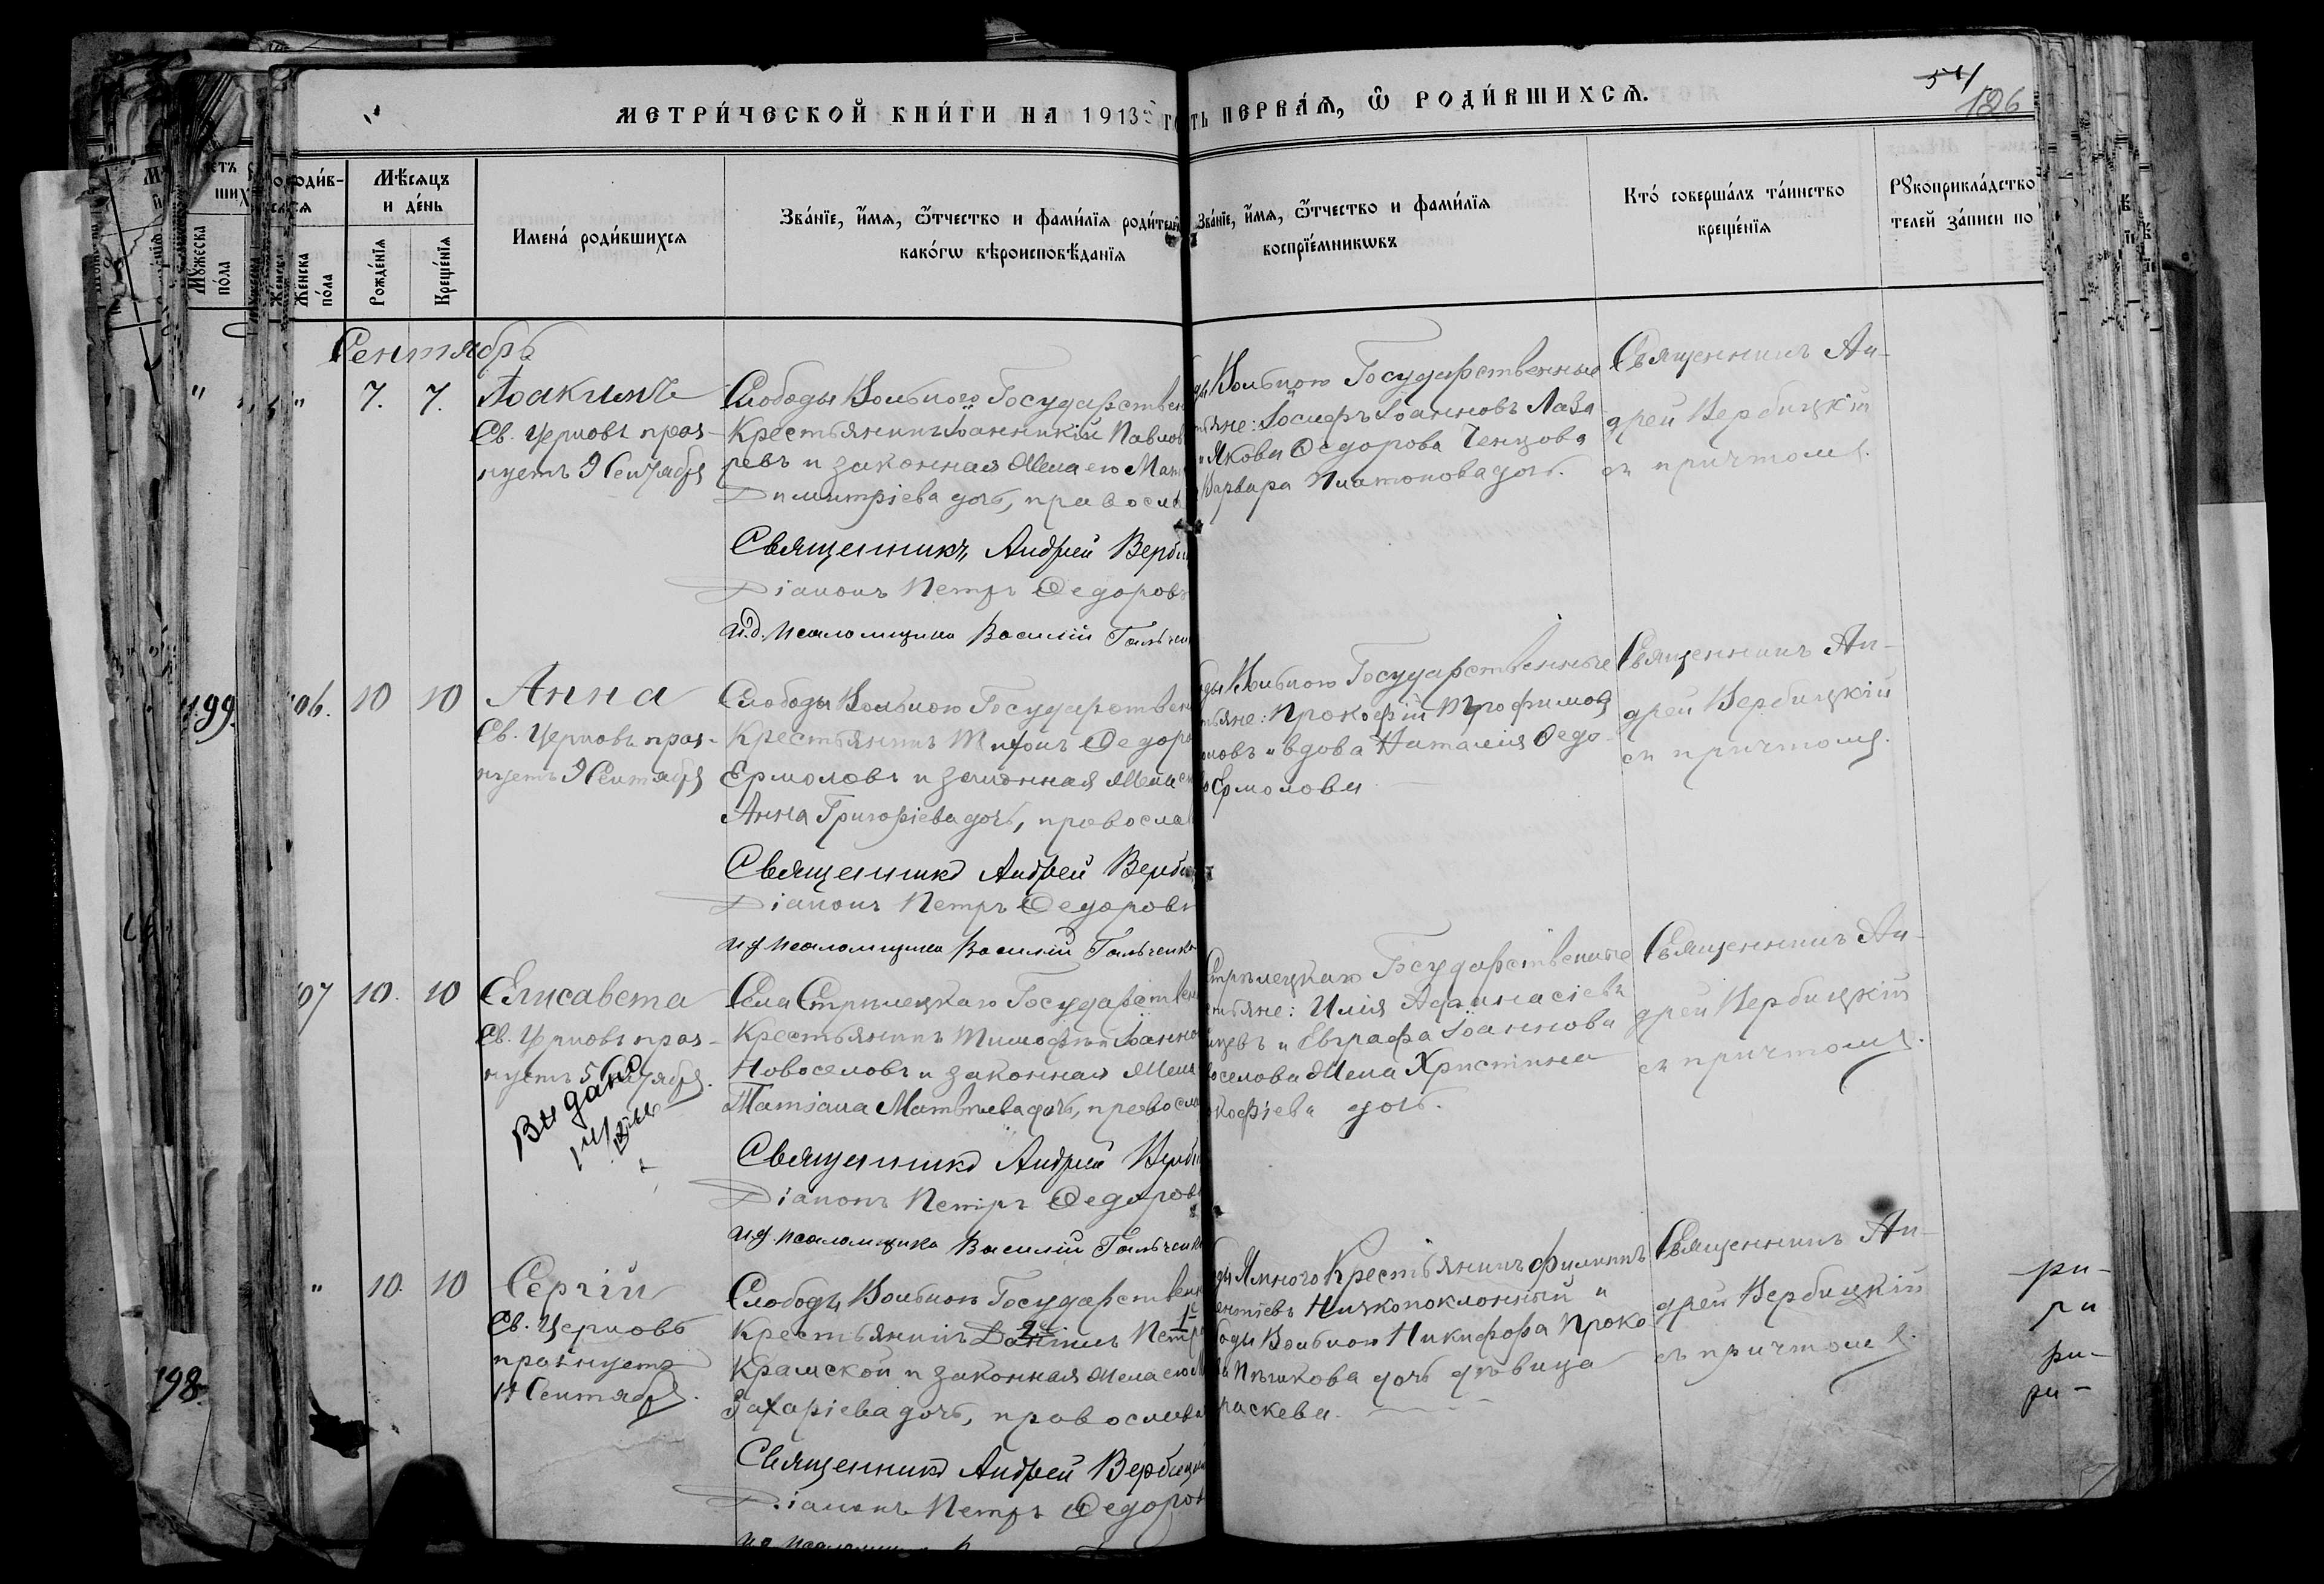 МЕТРИ́ЧЕСКОЙ КНИ́ГИ НА 1913 ПЕРВАЯ, Ѡ РОДИ́ВШИХСѦ.
126
Мꙋ́жеска по́ла
Же́нска по́ла
Мѣ́сѧцъ и де́нь
Рожде́нїѧ
Креще́нїѧ
Имена́ роди́вшихсѧ
Зва́нїе, и́мѧ, ѻ́тчество и фами́лїѧ
како́гѡ вѣроисповѣ́данїѧ
Зва́нїе, и́мѧ, ѻ́тчество и фами́лїѧ
воспрїе́мникѡвъ
Кто́ соверша́лъ та́инство
креще́нїѧ
Рꙋкоприкла́дство
телей за́писи по
Сентябрь
" 7. 7.
Іоакимъ
Св. Церковь праз-
нуетъ 9 Сентября
Слободы Вольного Государствен
Крестьянинъ Іоанникій Павлов
ревъ и законная жена его
Димитріева дочь, правосла
Священникъ Андрей Верби
Діаконъ Петръ Ѳедоровъ
И.д. псаломщика Василій
Вольного Государственные
Іосифъ Іоанновъ Лаза
и Якова Ѳедорова Ченцова
Варвара Платонова дочь.
Священникъ Ан-
дрей Вербицкій
съ причтомъ.
199. 106. 10 10
Анна
Св. Церковь праз-
нуетъ 9 Сентября
Слободы Вольного Государствен
Крестьянинъ Ѳедоро
Ермоловъ и законная жена
Анна Григоріева дочь, правосла
Священникъ Андрей Верби
Діаконъ Петръ Ѳедоровъ
и д псаломщика Василій
Вольного Государственные
Прокофій Трофимов
и вдова Наталія Ѳедо-
Ермолова
Священникъ Ан-
дрей Вербицкій
съ причтомъ.
107 10. 10
Елисавета
Св. Церковь праз-
нуетъ 5 Сентября.
Выдано
Села Стрѣлецкаго Государствен
Крестьянинъ Тимоѳей Іоанно
Новоселовъ и законная жена
Татіана Матвѣева дочь, правосла
Священникъ Андрей Верби
Діаконъ Петръ Ѳедоровъ
и.д. псаломщика Василій
Стрѣлецкаго Государственные
Илія Аѳанасіевъ
и Евграфа Іоаннова
жена Христина
дочь.
Священникъ Ан-
дрей Вербицкій
съ причтомъ.
" 10. 10
Сергій
Св. Церковь
празнуетъ
Сентября.
Слободы Вольного Государствен
Крестьянинъ Даніилъ Петро
Крамской и законная жена его
Захаріева дочь, православ
Священникъ Андрей Вербицкій
Діаконъ Петръ Ѳедоров
Ямного Крестьянинъ Филиппъ
Низкопоклонный и
Вольного Никифора Проко
дочь дѣвица
раскева.
Священникъ Ан-
дрей Вербицкій
съ причтомъ.
198